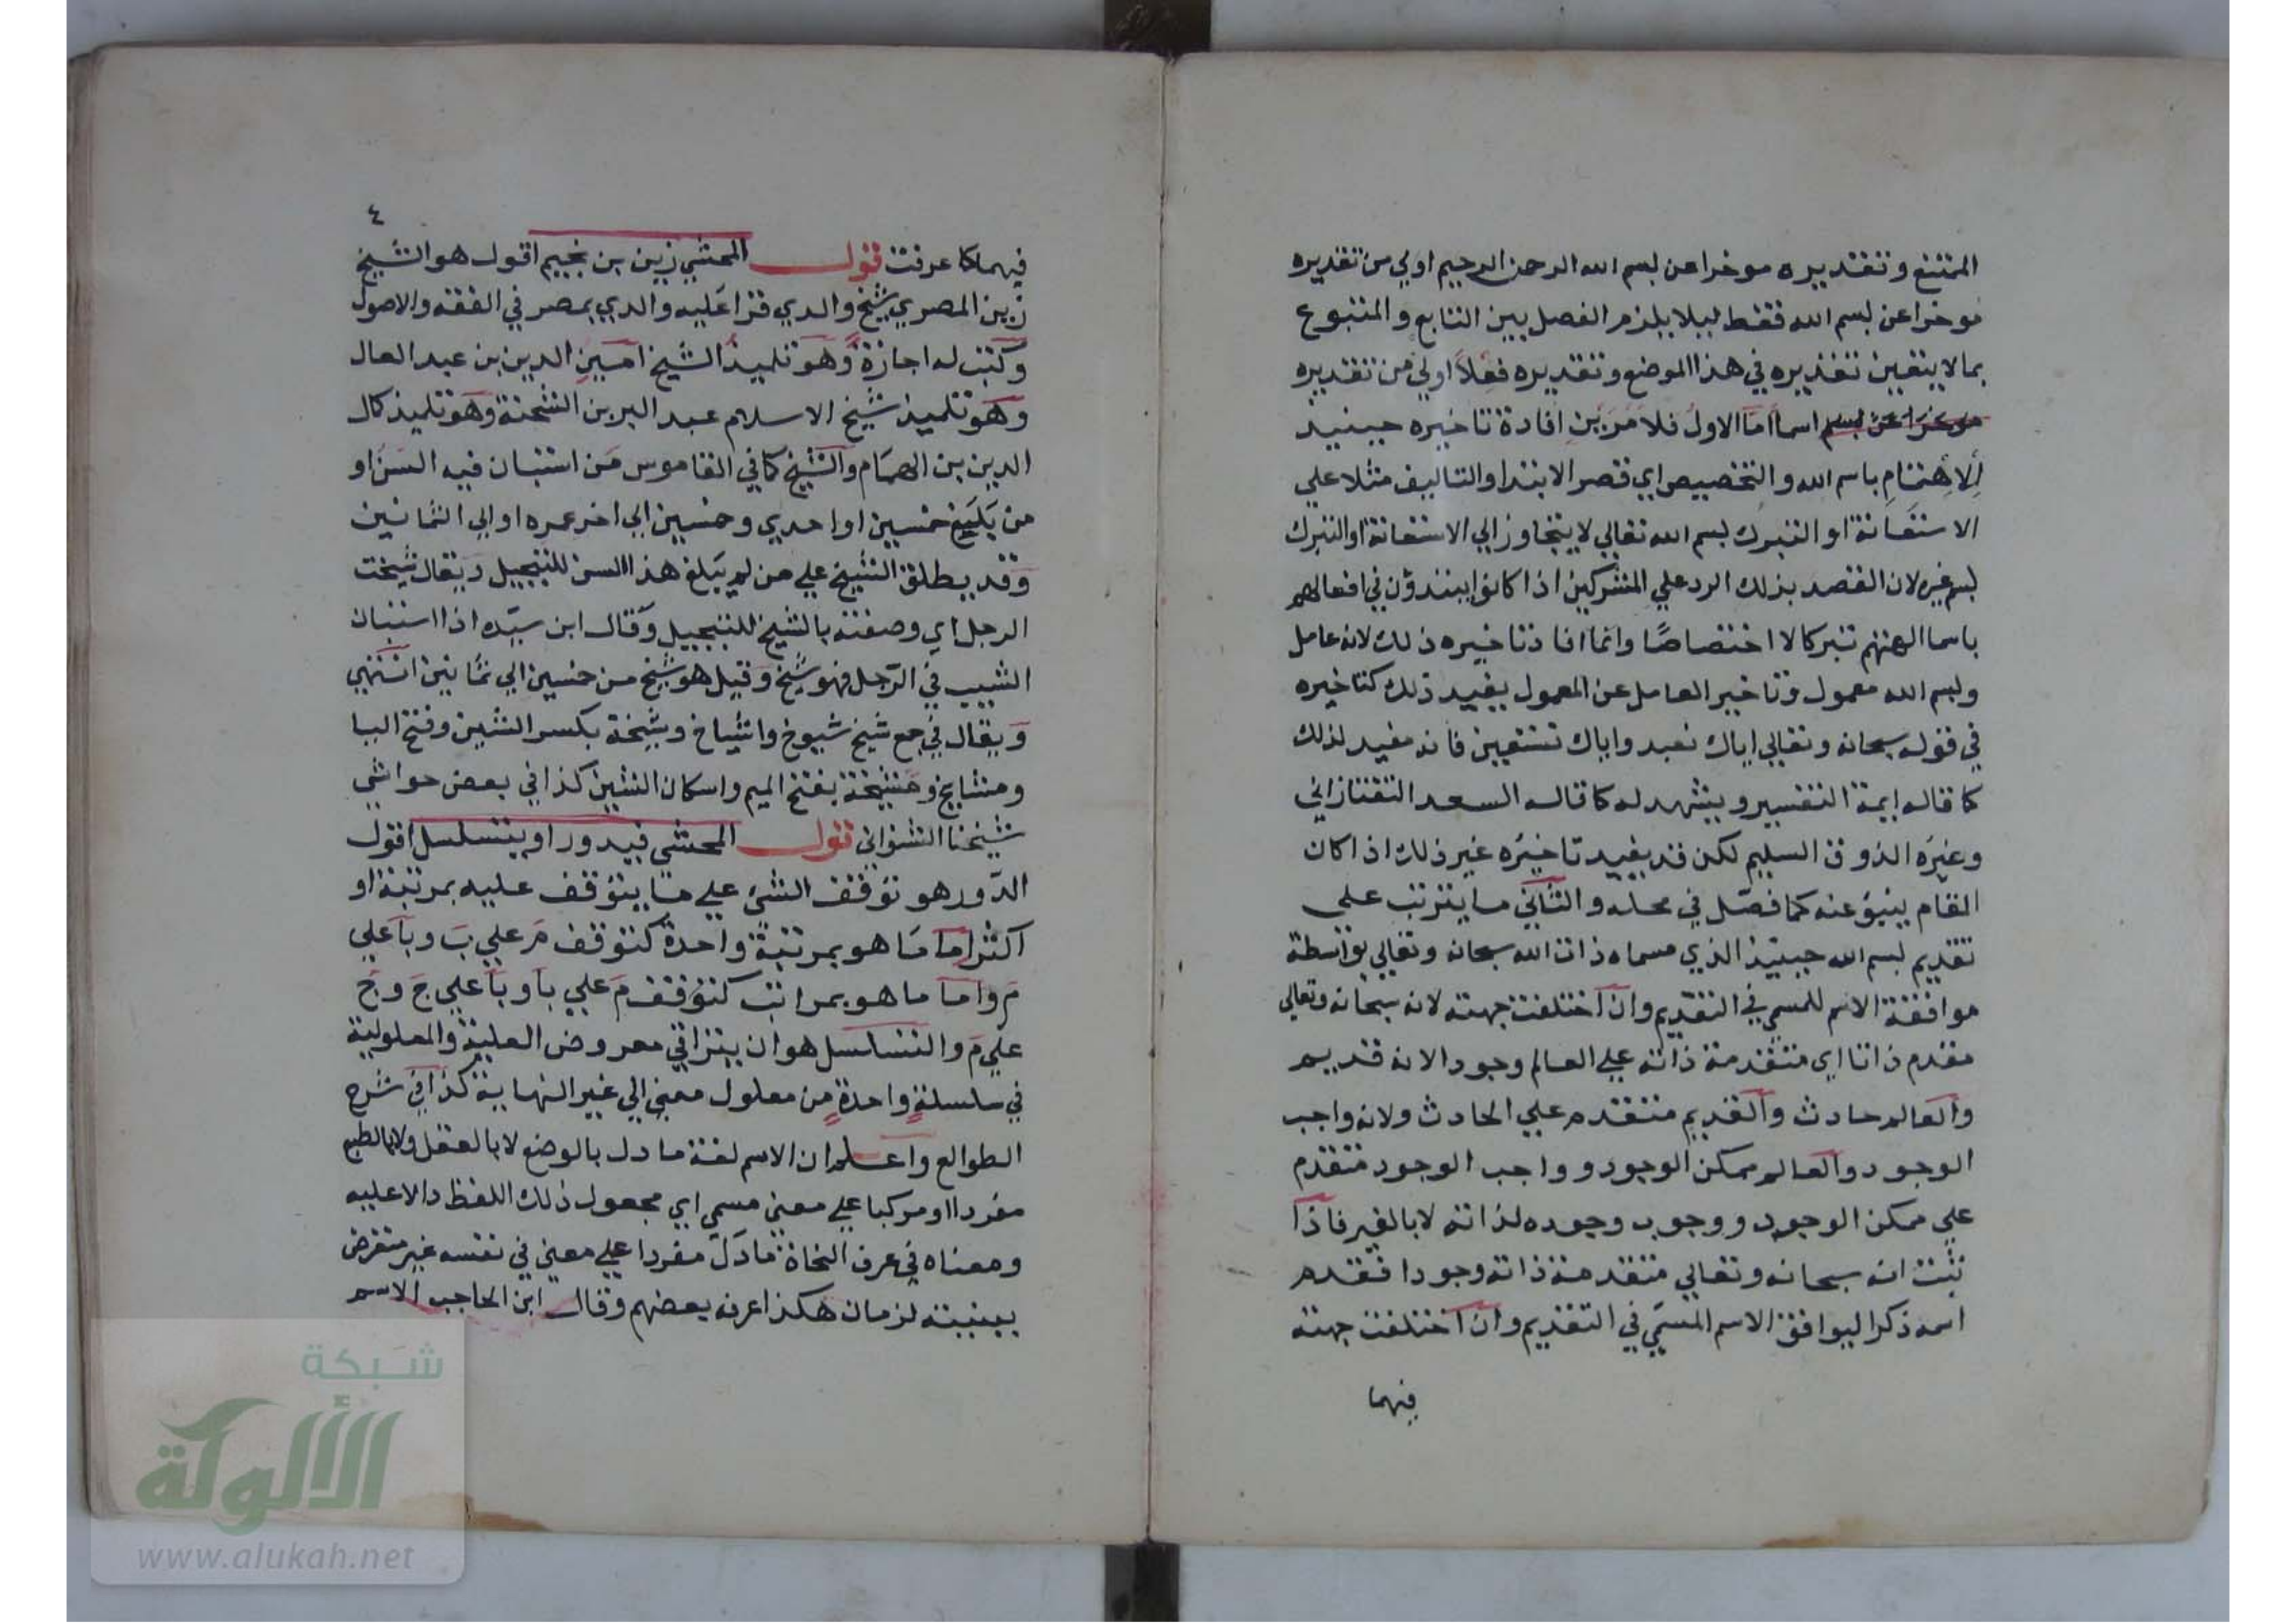 الممتنع وتقديره موخرا عن بسم الله الرحمن الرحيم اولي من تقديره
موخرا عن بسم الله فقط ليلا يلزم الفصل بين التابع والمتبوع
بما لا يتعين تقديره في هذا الموضع وتقديره فعلاً اولي من تقديره
موخرا عن بسم اسما اما الاول فلا مرين افادة تاخيره حينيذ
الاهتمام باسم الله والتخصيص اي قصر الابتدا والتاليف مثلا علي
الاستعانة او التبرك بسم الله تعالي لا يتجاوز الي الاستعانة او التبرك
بسم غيره لان القصد بذلك الرد علي المشركين اذا كانوا يبتدؤن في افعالهم
باسما الهتهم تبركا لا اختصاصًا وانما افاد تاخيره ذلك لانه عامل
وبسم الله معمول وتاخير العامل عن المعمول يفيد ذلك كتاخيره
في قوله سبحانه وتعالي اياك نعبد واياك نستعين فانه مفيد لذلك
كما قاله ايمة التفسير ويشهد له كما قاله السعد التفتازاني
وغيره الذوق السليم لكن قد يفيد تاخيره غير ذلك اذا كان
المقام ينبئ عنه كما فصّل في محله والثاني ما يترتب علي
تقديم بسم الله حينيذ الذي مسماه ذات الله سبحانه وتعالي بواسطة
موافقة الاسم للمسمي في التقديم وان اختلفت جهته لانه سبحانه وتعالي
مقدم ذاتا اي متقدمة ذاته علي العالم وجودا لانه قديم
والعالم حادث والقديم متقدم علي الحادث ولانه واجب
الوجود والعالم ممكن الوجود وواجب الوجود متقدم
علي ممكن الوجود ووجوب وجوده لذاته لا بالغير فاذا
ثبت انه سبحانه وتعالي متقدمة ذاته وجودا فقدم
اسمه ذكرا ليوافق الاسم المسمّي في التقديم وان اختلفت جهته
فيهما
٤
فيهما كما عرفت قول المحشي زين بن نجيم اقول هو الشيخ
زين المصري شيخ والدي قرا عليه والدي بمصر في الفقه والاصول
وكتب له اجازة وهو تلميذ الشيخ امين الدين بن عبد العال
وهو تلميذ شيخ الاسلام عبد البر بن الشحنة وهو تلميذ كمال
الدين بن الهمام والشيخ كما في القاموس من استبان فيه السن او
من يبلغ خمسين او احدي وخمسين الي اخر عمره او الي الثمانين
وقد يطلق الشيخ علي من لم يبلغ هذا السن للتبجيل ويقال شيخت
الرجل اي وصفته بالشيخ للتبجيل وقال ابن سيّده اذا استبان
الشيب في الرّجل فهو شيخ وقيل هو شيخ من خمسين الي ثمانين انتهي
ويقال في جمع شيخ شيوخ واشياخ وشيخة بكسر الشين وفتح اليا
ومشايخ ومشيخة بفتح الميم واسكان الشين كذا في بعض حواشي
شيخنا الشنواني قول المحشي فيدور او يتسلسل اقول
الدّور هو توقف الشئ علي ما يتوقف عليه بمرتبة او
اكثر اما ما هو بمرتبة واحدة كتوقف م علي ب وبا علي
م واما ما هو بمراتب كتوقف م علي با وبا علي ج وج
علي م والتسلسل هو ان يتراقي معروض العلية والمعلولية
في سلسلة واحدة من معلول معين الي غير النهاية كذا في شرح
الطوالع واعلم ان الاسم لغة ما دل بالوضع لا بالعقل ولا بالطبع
مفردا او مركبا علي معني مسمي اي مجعول ذلك اللفظ دالا عليه
ومعناه في عرف النحاة ما دلّ مفردا علي معني في نفسه غير متعرض
ببنيته لزمان هكذا عرفه بعضهم وقال ابن الحاجب الاسم
شبكة
الألوكة
www.alukah.net